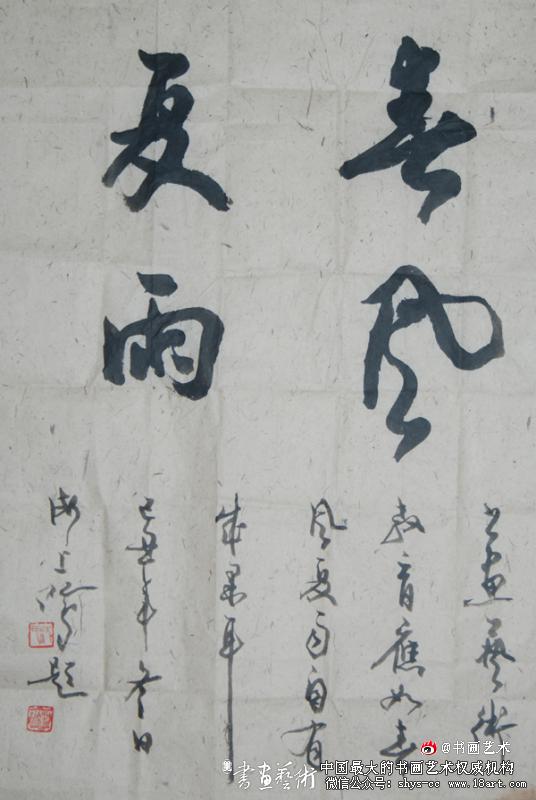 春风
夏雨
书画艺術
教育應如春
风夏雨自有
成果耳
己丑年冬日
海上
题
@书画艺术
書畫藝術
中国最大的书画艺术权威机构
微信公众号：shys-cc 官网：www.18art.com